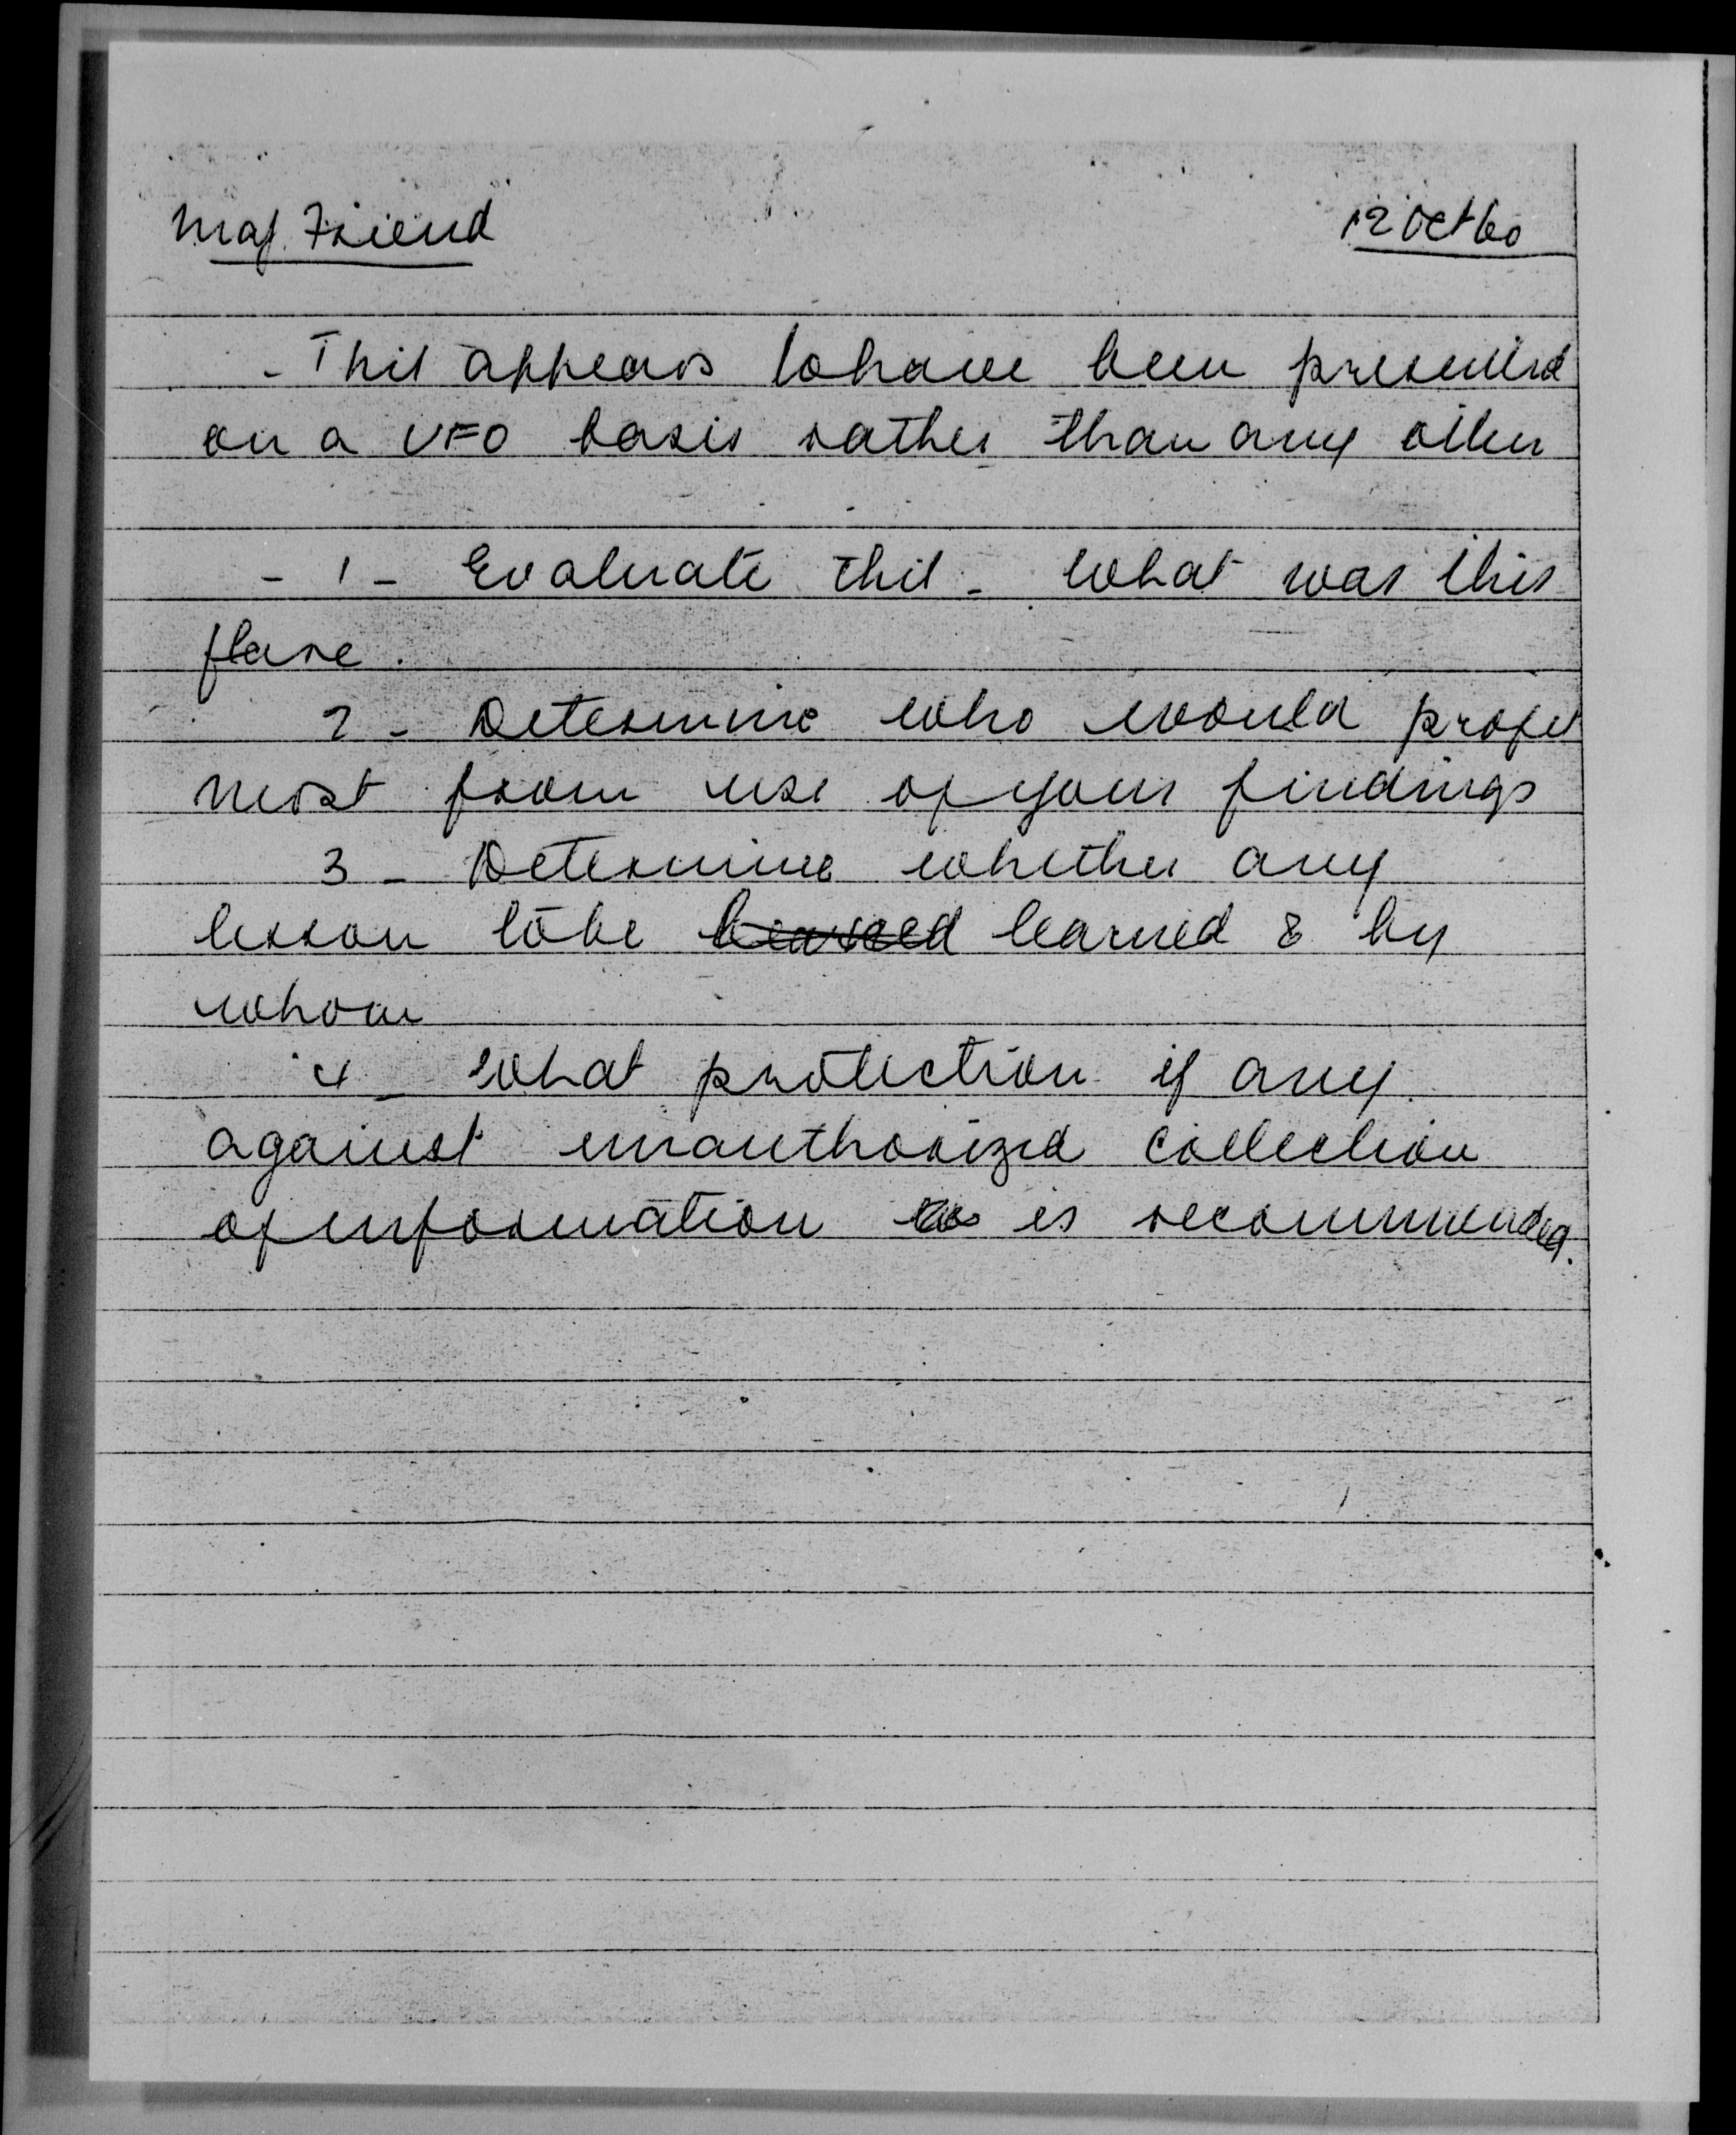 Maj. Friend 12 Oct 60
- This appears to have been presented
on a UFO basis rather than any other
- 1 - Evaluate this - What was this
flare.
2 - Determine who would profit
most from use of your findings
3 - Determine whether any
lesson to be learned learned & by
whom
4 - What protection if any
against unauthorized collection
of information is recommended.